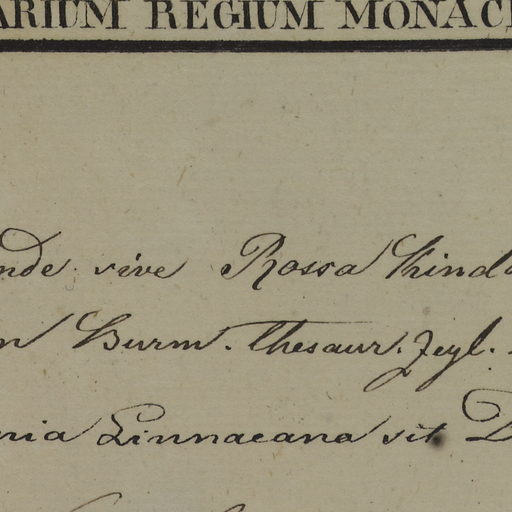 ARIUM REGIUM MONAC
nde sive Rossa Kind
n Burm. Thesaur. Zeyl.
nia Linnaeana sit D